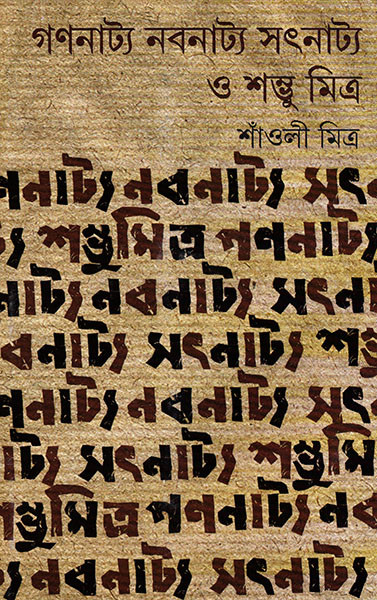 গণনাট্য নবনাট্য সৎনাট্য
ও শম্ভু মিত্র
শাঁওলী মিত্র
ণনাট্য নবনাট্য সৎ
্য শম্ভুমিত্র গণনাট্য
নাট্য নবনাট্য সৎনাট
বনাট্য সৎনাট্য শম্ভু
ণনাট্য নবনাট্য সৎন
নাট্য সৎনাট্য শম্ভুমি
ম্ভুমিত্র গণনাট্য ন
ট্য নবনাট্য সৎনাট্য